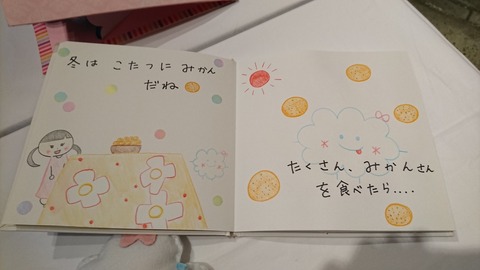 冬は こたつに みかん
だね
たくさん、みかんさん
を食べたら....